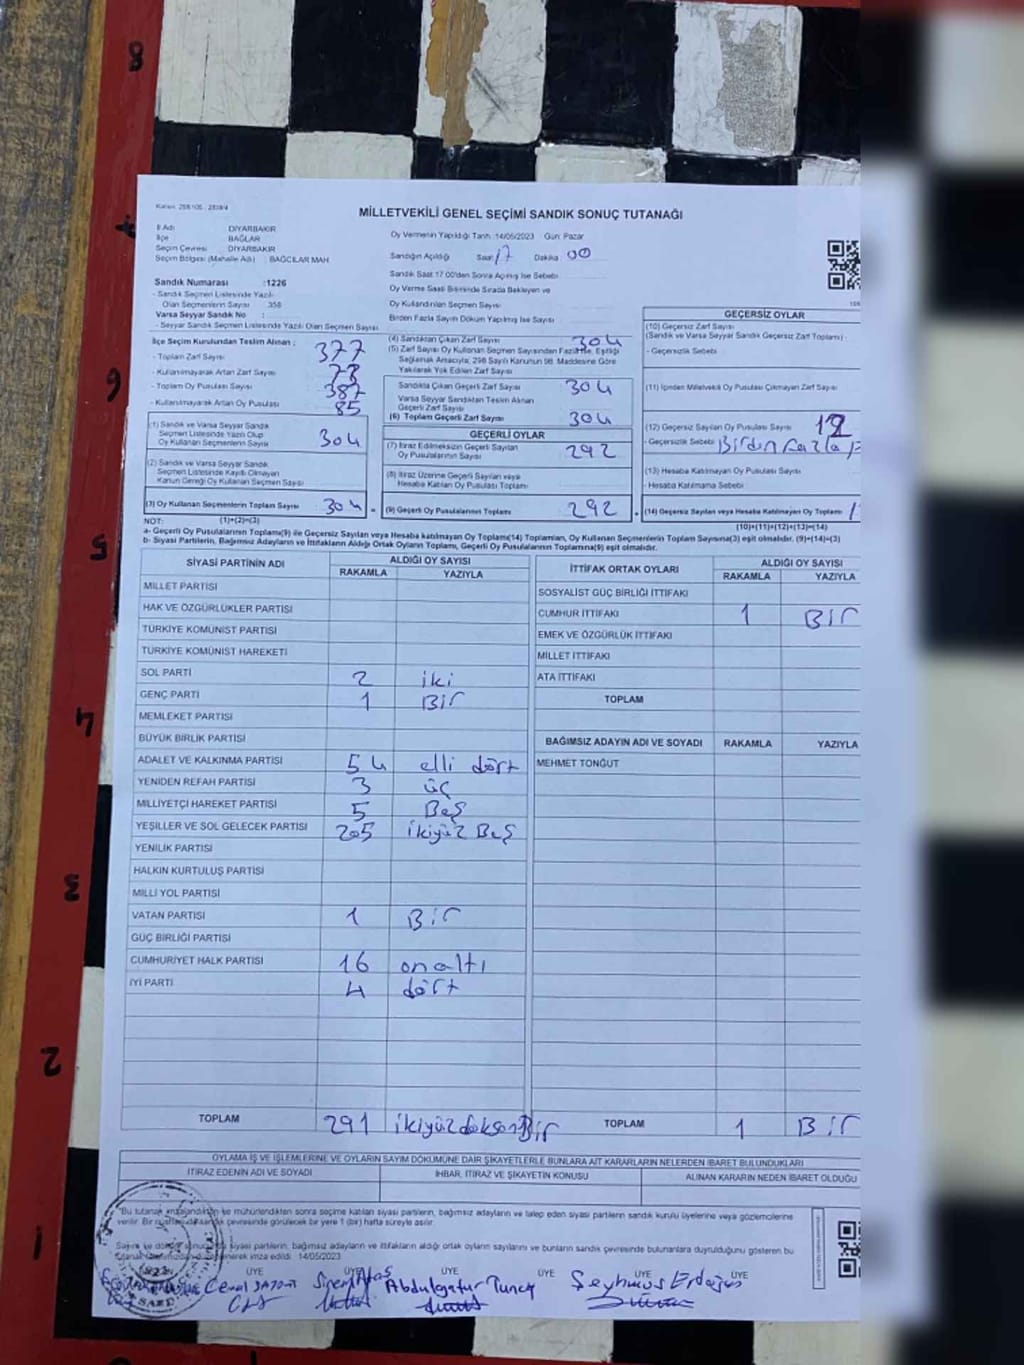 MİLLETVEKİLİ GENEL SEÇİMİ SANDIK SONUÇ TUTANAĞI
İl Adı DİYARBAKIR
İlçe BAĞLAR
Seçim Çevresi DİYARBAKIR
Seçim Bölgesi (Mahalle Adı) : BAĞCILAR MAH
Oy Vermenin Yapıldığı Tarih :14/05/2023 Gün: Pazar
Sandığın Açıldığı Saat 17 Dakika 00
Sandık Saat 17:00'den Sonra Açılmış İse Sebebi
Oy Verme Saati Bitiminde Sırada Bekleyen ve
Oy Kullandırılan Seçmen Sayısı
Birden Fazla Sayım Döküm Yapılmış İse Sayısı
Sandık Numarası :1226
- Sandık Seçmen Listesinde Yazılı
Olan Seçmenlerin Sayısı : 358
Varsa Seyyar Sandık No :
- Seyyar Sandık Seçmen Listesinde Yazılı Olan Seçmen Sayısı
İlçe Seçim Kurulundan Teslim Alınan :
- Toplam Zarf Sayısı 377
- Kullanılmayarak Artan Zarf Sayısı 73
- Toplam Oy Pusulası Sayısı 387
- Kullanılmayarak Artan Oy Pusulası 85
(1) Sandık ve Varsa Seyyar Sandık
Seçmen Listesinde Yazılı Olup
Oy Kullanan Seçmenlerin Sayısı 304
(2) Sandık ve Varsa Seyyar Sandık
Seçmen Listesinde Kayıtlı Olmayan
Kanun Gereği Oy Kullanan Seçmen Sayısı
(3) Oy Kullanan Seçmenlerin Toplam Sayısı 304 =
(4) Sandıktan Çıkan Zarf Sayısı 304
(5) Zarf Sayısı Oy Kullanan Seçmen Sayısından Fazla İse, Eşitliği
Sağlamak Amacıyla, 298 Sayılı Kanunun 98. Maddesine Göre
Yakılarak Yok Edilen Zarf Sayısı
Sandıkta Çıkan Geçerli Zarf Sayısı 304
Varsa Seyyar Sandıktan Teslim Alınan
Geçerli Zarf Sayısı
(6) Toplam Geçerli Zarf Sayısı 304
GEÇERLİ OYLAR
(7) İtiraz Edilmeksizin Geçerli Sayılan
Oy Pusulalarının Sayısı 292
(8) İtiraz Üzerine Geçerli Sayılan veya
Hesaba Katılan Oy Pusulası Toplamı
(9) Geçerli Oy Pusulalarının Toplamı 292 +
GEÇERSİZ OYLAR
(10) Geçersiz Zarf Sayısı
(Sandık ve Varsa Seyyar Sandık Geçersiz Zarf Toplamı) :
- Geçersizlik Sebebi
(11) İçinden Milletvekili Oy Pusulası Çıkmayan Zarf Sayısı
(12) Geçersiz Sayılan Oy Pusulası Sayısı 12
- Geçersizlik Sebebi Birden Fazla
(13) Hesaba Katılmayan Oy Pusulası Sayısı
- Hesaba Katılmama Sebebi
(14) Geçersiz Sayılan veya Hesaba Katılmayan Oy Toplamı 1
NOT: (1)+(2)=(3) (10)+(11)+(12)+(13)=(14)
a- Geçerli Oy Pusulalarının Toplamı(9) ile Geçersiz Sayılan veya Hesaba katılmayan Oy Toplamı(14) Toplamları, Oy Kullanan Seçmenlerin Toplam Sayısına(3) eşit olmalıdır. (9)+(14)=(3)
b- Siyasi Partilerin, Bağımsız Adayların ve İttifakların Aldığı Ortak Oyların Toplamı, Geçerli Oy Pusulalarının Toplamına(9) eşit olmalıdır.
SİYASİ PARTİNİN ADI ALDIĞI OY SAYISI
RAKAMLA YAZIYLA
MİLLET PARTİSİ
HAK VE ÖZGÜRLÜKLER PARTİSİ
TÜRKİYE KOMÜNİST PARTİSİ
TÜRKİYE KOMÜNİST HAREKETİ
SOL PARTİ 2 iki
GENÇ PARTİ 1 Bir
MEMLEKET PARTİSİ
BÜYÜK BİRLİK PARTİSİ
ADALET VE KALKINMA PARTİSİ 54 elli dört
YENİDEN REFAH PARTİSİ 3 üç
MİLLİYETÇİ HAREKET PARTİSİ 5 Beş
YEŞİLLER VE SOL GELECEK PARTİSİ 205 ikiyüz Beş
YENİLİK PARTİSİ
HALKIN KURTULUŞ PARTİSİ
MİLLİ YOL PARTİSİ
VATAN PARTİSİ 1 Bir
GÜÇ BİRLİĞİ PARTİSİ
CUMHURİYET HALK PARTİSİ 16 on altı
İYİ PARTİ 4 dört
TOPLAM 291 ikiyüzdoksanBir
İTTİFAK ORTAK OYLARI ALDIĞI OY SAYISI
RAKAMLA YAZIYLA
SOSYALİST GÜÇ BİRLİĞİ İTTİFAKI
CUMHUR İTTİFAKI 1 Bir
EMEK VE ÖZGÜRLÜK İTTİFAKI
MİLLET İTTİFAKI
ATA İTTİFAKI
TOPLAM
BAĞIMSIZ ADAYIN ADI VE SOYADI RAKAMLA YAZIYLA
MEHMET TONĞUT
TOPLAM 1 Bir
OYLAMA İŞ VE İŞLEMLERİNE VE OYLARIN SAYIM DÖKÜMÜNE DAİR ŞİKAYETLERLE BUNLARA AİT KARARLARIN NELERDEN İBARET BULUNDUKLARI
İTİRAZ EDENİN ADI VE SOYADI İHBAR, İTİRAZ VE ŞİKAYETİN KONUSU ALINAN KARARIN NEDEN İBARET OLDUĞU
"Bu tutanak imzalandıktan ve mühürlendikten sonra seçime katılan siyasi partilerin, bağımsız adayların ve talep eden siyasi partilerin sandık kurulu üyelerine veya gözlemcilerine
verilir. Bir nüshası da sandık çevresinde görülecek bir yere 1 (bir) hafta süreyle asılır.
Sayım ve döküm sonucu siyasi partilerin, bağımsız adayların ve ittifakların aldığı ortak oyların sayılarını ve bunların sandık çevresinde bulunanlara duyurulduğunu gösteren bu
tutanak düzenlenerek imza edildi. 14/05/2023
ÜYE ÜYE ÜYE ÜYE ÜYE ÜYE
Sinem Ataş Abdulgafur Tunç Şeyhmus Erdoğuş
8
6
5
4
3
2
1